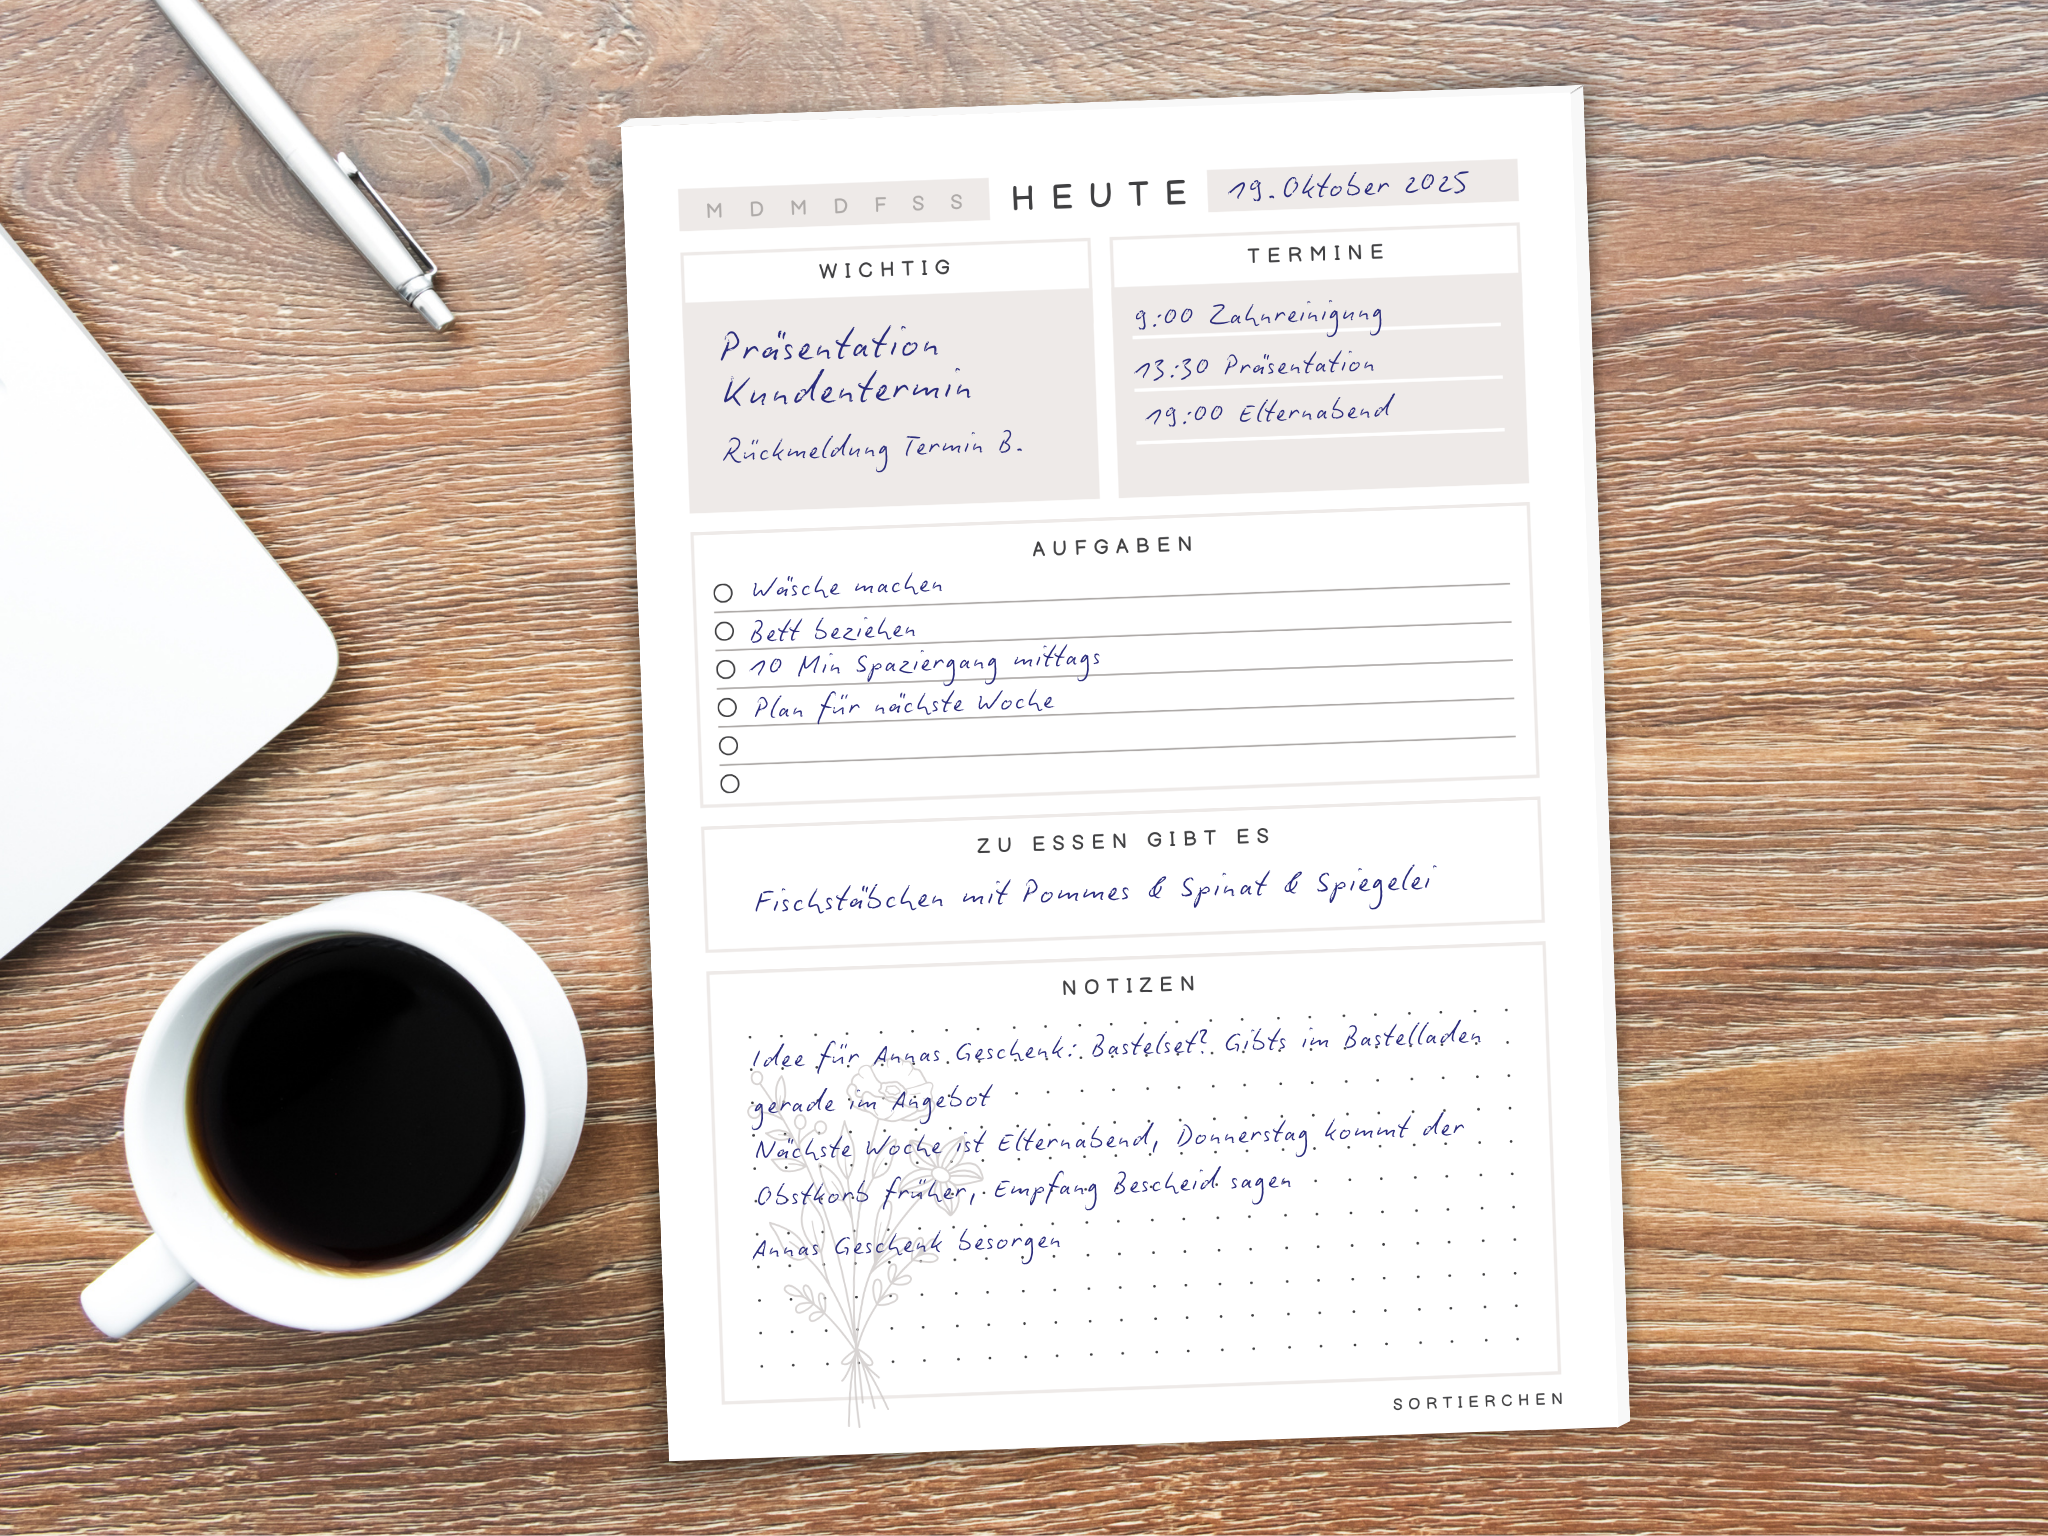 M D M D F S S
HEUTE
19. Oktober 2025
WICHTIG
Präsentation
Kundentermin
Rückmeldung Termin B.
TERMINE
9:00 Zahnreinigung
13:30 Präsentation
19:00 Elternabend
AUFGABEN
Wäsche machen
Bett beziehen
10 Min Spaziergang mittags
Plan für nächste Woche
ZU ESSEN GIBT ES
Fischstäbchen mit Pommes & Spinat & Spiegelei
NOTIZEN
Idee für Annas Geschenk: Bastelset? Gibts im Bastelladen
gerade im Angebot
Nächste Woche ist Elternabend, Donnerstag kommt der
Obstkorb früher, Empfang Bescheid sagen
Annas Geschenk besorgen
SORTIERCHEN